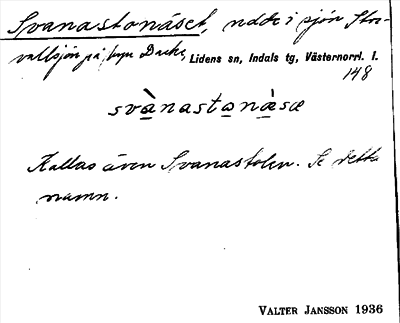 Svanastonäset, udde i sjön Stor-
vallsjön på byn Dacke, Lidens sn, Indals tg, Västernorrl. l.
148
svànastonàsæ
Kallas även Svanastolen. Se detta
namn.
VALTER JANSSON 1936